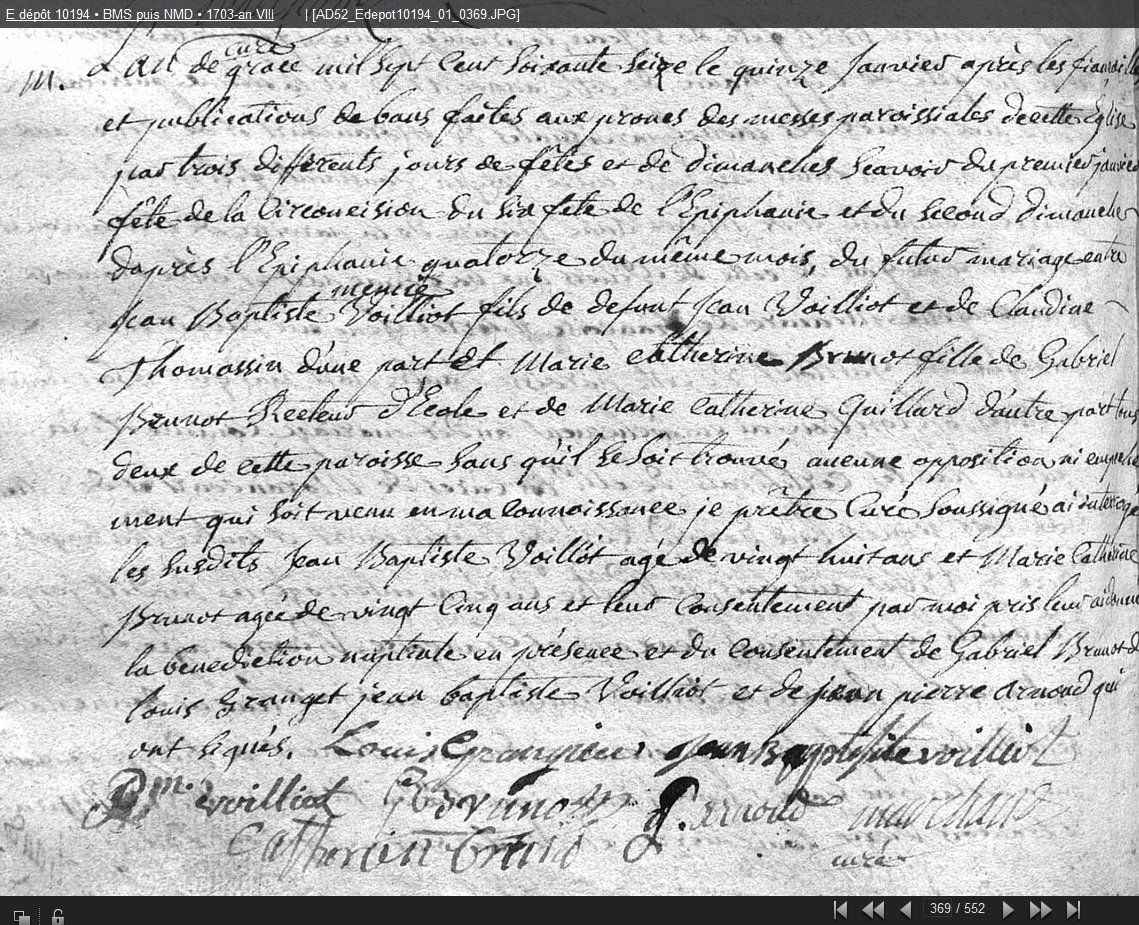 E dépôt 10194 • BMS puis NMD • 1703-an VIII | [AD52_Edepot10194_01_0369.JPG]
curé
m. L'an de grace mil sept cent soixante seize le quinze Janvier après les
et publications de bans faîtes aux prones des messes paroissiales de cette Église
par trois différents jours de fêtes et de dimanches Scavoir du premier janvier
fête de la Circoncision du six fete de l'Epiphanie et du second dimanche
daprès l'Epiphanie quatorze du même mois, du futur mariage entre
memie
Jean Baptiste Voilliot fils de defunt Jean Voilliot et de Claudine
Thomassin d'une part et Marie Catherine Brunot fille de Gabriel
Brunot Recteur d'Ecole et de Marie Catherine Guillard d'autre part tous
deux de cette paroisse sans qu'il se soit trouvé aucune opposition ni
ment qui soit venu en ma connoissance je prêtre Curé soussigné ai interrogé
les susdits Jean Baptiste Voilliot agé de vingt huit ans et Marie Catherine
Brunot agée de vingt cinq ans et leur consentement par moi pris leur ai
la benediction nuptiale en présence et du consentement de Gabriel Brunot
louis Granget jean baptiste Voilliot et de jean pierre arnoud qui
ont signés. Louis jean Baptiste voilliot
voilliot G Brunot arnoud marchand
Catherien curé
369 / 552